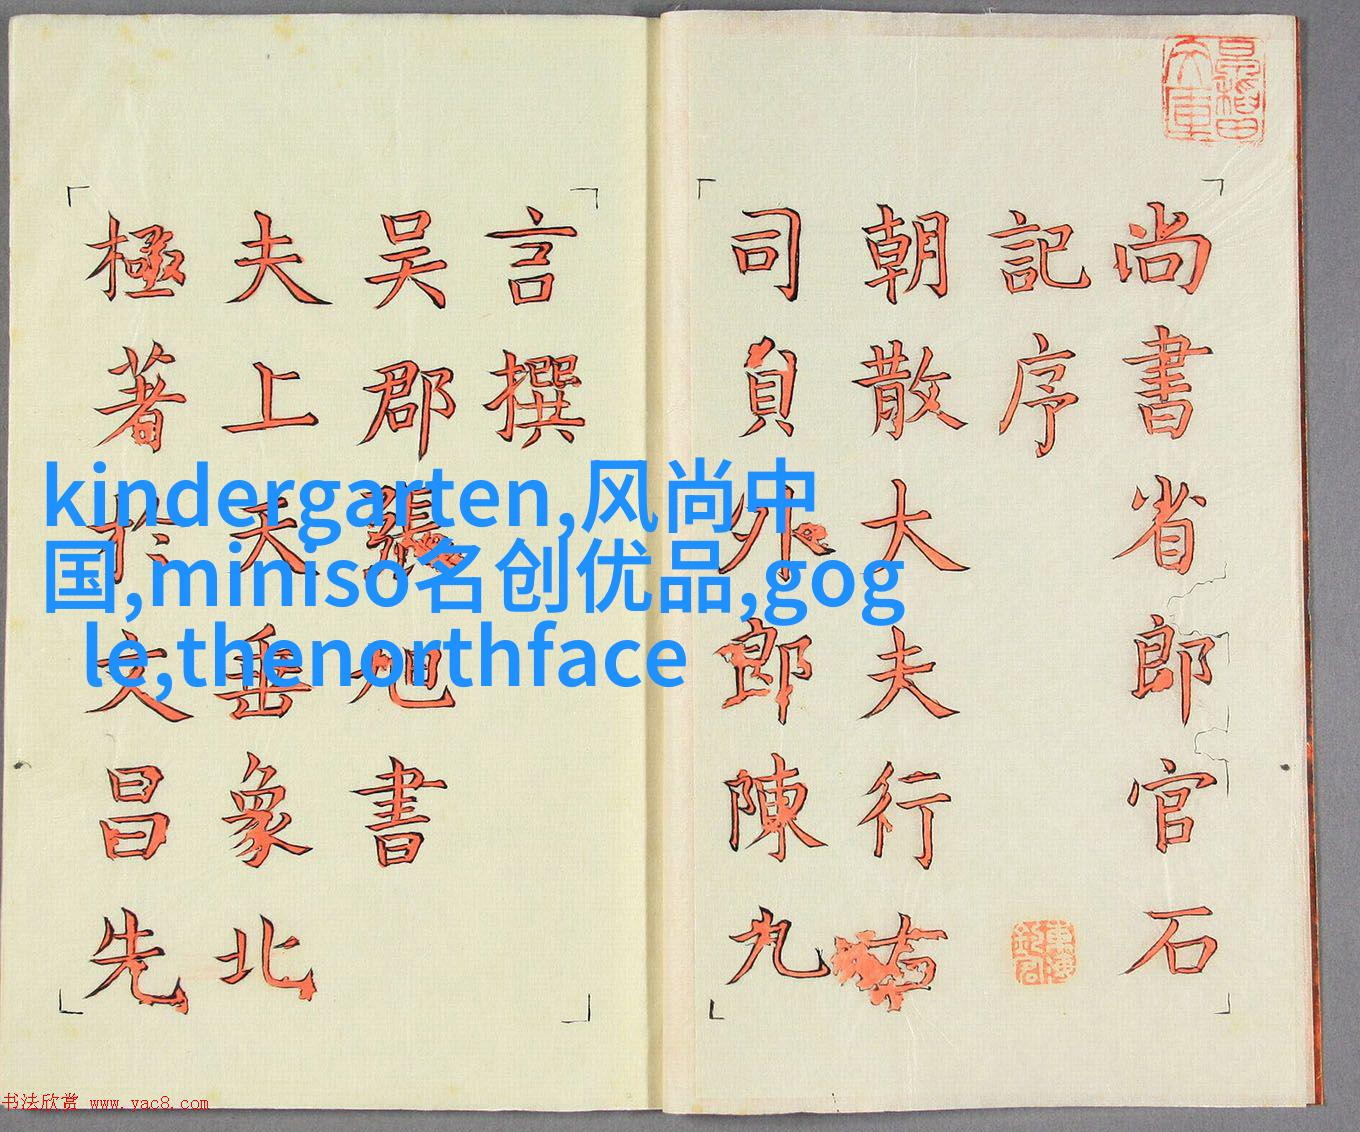 尚書省郎官石
記序
朝散大夫行右
司員外郎陳九
言撰
吳郡張旭書
夫上天垂象北
極著於文昌先
kindergarten,风尚中
国,miniso名创优品,gog
le,thenorthface
书法欣赏 www.yac8.com